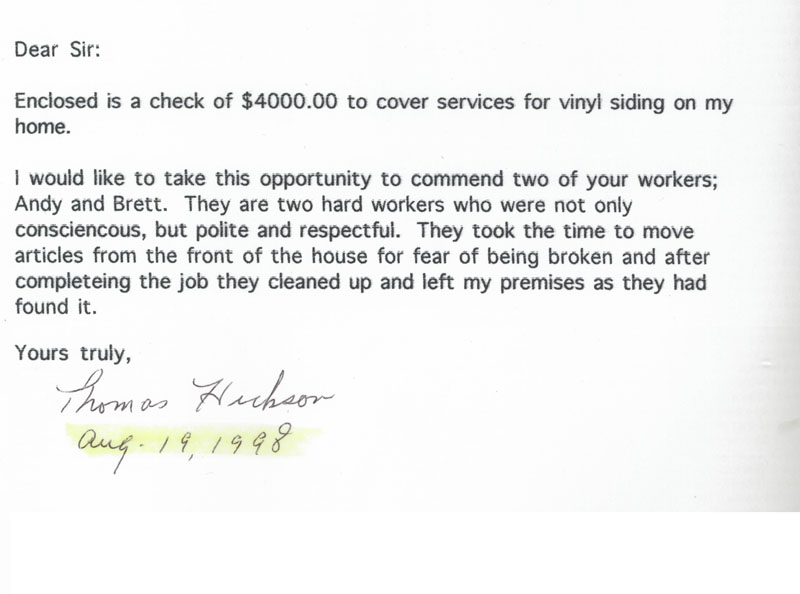 Dear Sir:
Enclosed is a check of $4000.00 to cover services for vinyl siding on my
home.
I would like to take this opportunity to commend two of your workers;
Andy and Brett. They are two hard workers who were not only
consciencous, but polite and respectful. They took the time to move
articles from the front of the house for fear of being broken and after
completeing the job they cleaned up and left my premises as they had
found it.
Yours truly,
Thomas Hickson
Aug. 19, 1998